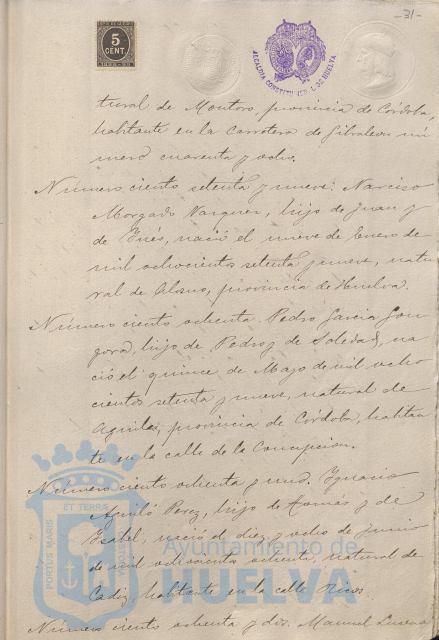 -31-
5
CENT.
ALCALDIA CONSTITUCIONAL DE HUELVA
tural de Montoro, provincia de Córdoba,
habitante en la carretera de Gibraleon nú
mero cuarenta y ocho.
Número ciento setenta y nueve: Narciso
Morgado Vazquez, hijo de Juan y
de Inés, nació el nueve de Enero de
mil ochocientos setenta y nueve, natu
ral de Alosno, provincia de Huelva.
Número ciento ochenta. Pedro Garcia Gon
gora, hijo de Pedro y de Soledad, na
ció el quince de Mayo de mil ocho
cientos setenta y nueve, natural de
Aguilar, provincia de Córdoba, habitan
te en la calle de la Concepcion.
Número ciento ochenta y uno. Ignacio
Aguiló Perez, hijo de Tomás y de
Isabel, nació el diez y ocho de Junio
de mil ochocientos ochenta, natural de
Cadiz, habitante en la calle Ricos.
Número ciento ochenta y dos. Manuel Lucena
PORTUS MARIS ET TERRAE CUSTODIA
Ayuntamiento de
HUELVA